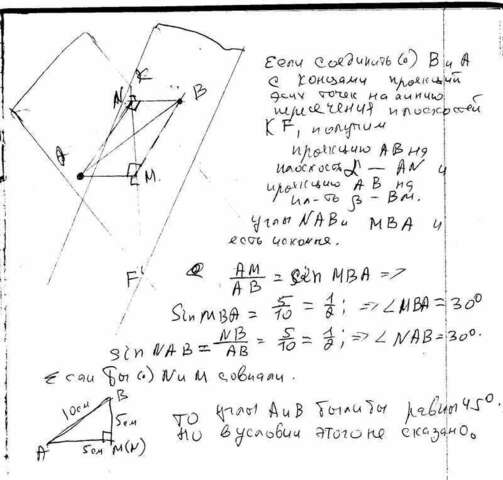 Если соединить (·) В и А
с концами проекций
этих точек на линию
пересечения плоскостей
KF, получим
проекцию АВ на
плоскость α — AN и
проекцию АВ на
пл-ть β – Вм.
углы NAB и MBA и
есть искомые.
K
N
B
A
M
F
AM/AB = sin MBA =>
Sin MBA = 5/10 = 1/2; => ∠MBA = 30°
sin NAB = NB/AB = 5/10 = 1/2; => ∠NAB = 30°.
Если бы (·) N и M совпали.
B
10см
5см
A
5см
M(N)
то углы А и В были бы равны 45°.
Но в условии этого не сказано.